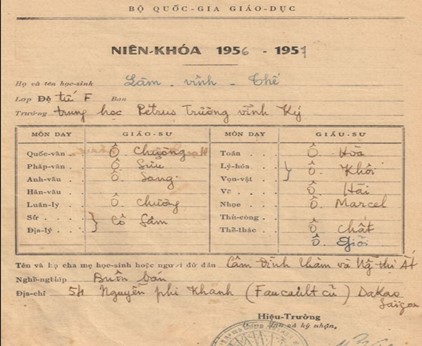 BỘ QUỐC-GIA GIÁO-DỤC
NIÊN-KHÓA 1956 - 1957
Họ và tên học-sinh Lâm - Vĩnh - Thế
Lớp Đệ tứ F Ban
Trường trung học Pétrus Trương Vĩnh Ký
MÔN DẠY GIÁO-SƯ MÔN DẠY GIÁO-SƯ
Quốc-văn Ô. Chương Toán Ô. Hòa
Pháp-văn Ô. Sửu Lý-hóa Ô. Khôi
Anh-văn Ô. Sang Vạn-vật
Hán-văn Vẽ Ô. Hải
Luân-lý Ô. Chương Nhạc Ô. Marcel
Sử Cô Sâm Thủ-công
Địa-lý Thể-thao Ô. Chất
Ô. Giỏi
Tên và họ cha mẹ học-sinh hoặc người đỡ đầu Lâm Đình Thâm và Ng. thị Ất
Nghề-nghiệp Buôn bán
Địa-chỉ 54 Nguyễn phi Khanh (Faucault cũ) DaKao
Saigon
Hiệu-Trưởng